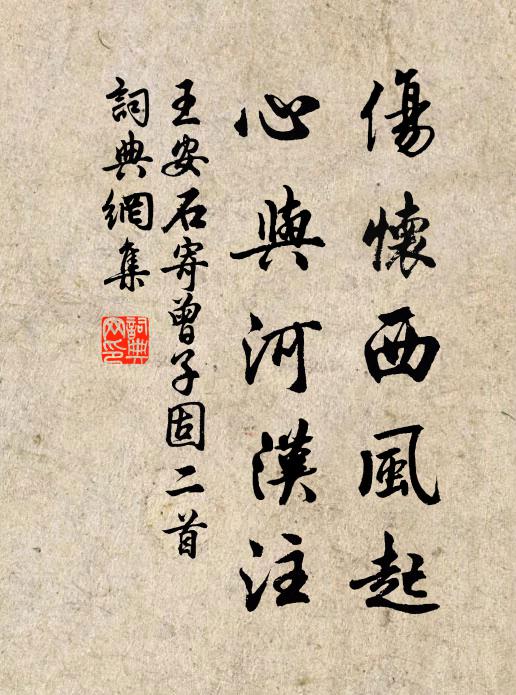 傷懷西風起
心與河漢注
王安石寄曾子固二首
詞典網集
詞典
网印